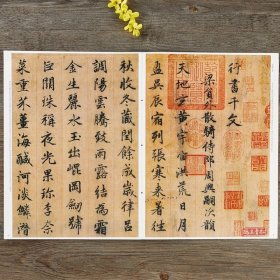 行書千文
梁員外散騎侍郎周興嗣次韻
天地玄黃宇宙洪荒日月
盈昃辰宿列張寒来暑往
秋收冬藏閏餘成歲律呂
調陽雲騰致雨露結為霜
金生麗水玉出崐岡劒號
巨闕珠稱夜光果珍李柰
菜重芥薑海鹹河淡鱗潛